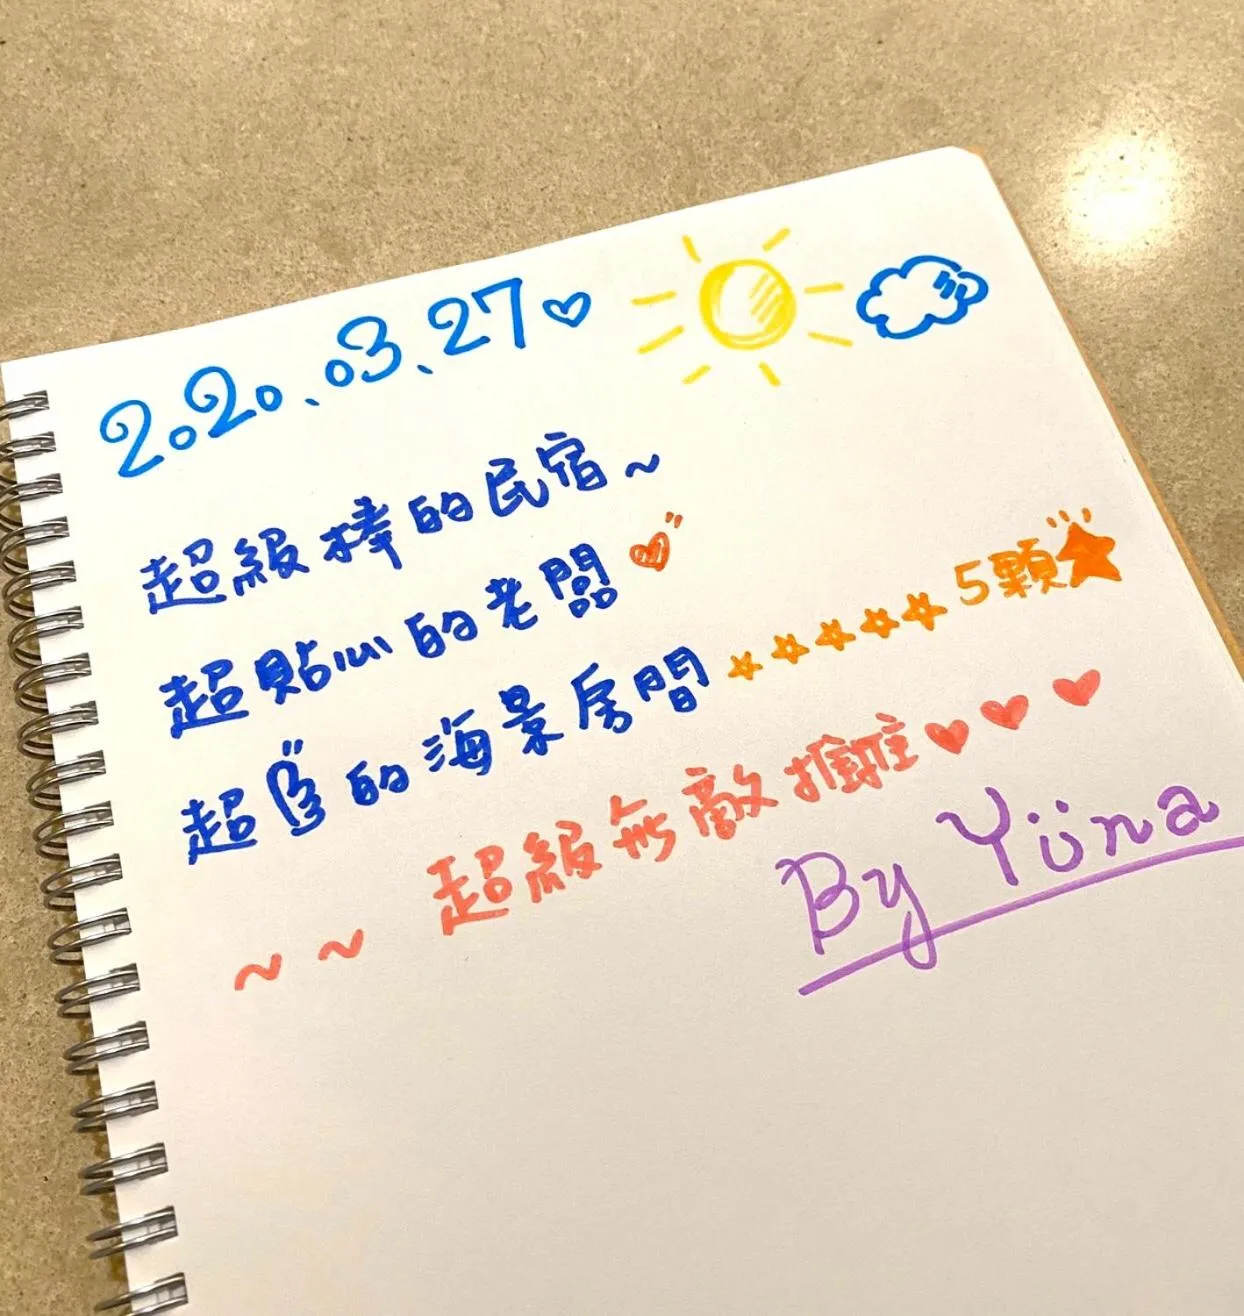 2020、03、27
超級棒的民宿~
超貼心的老闆
超的海景房間 5顆
~ ~ 超級無敵推
By Yuna